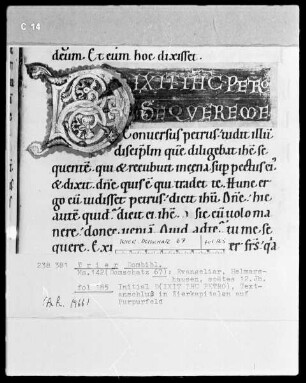 C 14
deum. Et cum hoc dixisset.
DIXIT IHC PETRO
SEQUERE ME
Conversus petrus vidit illū
discipłm quē diligebat ihc̄ se
quentem. qui & recubuit in cena sup pectus ei
& dixit. dn̄e quis ē qui tradet te. Hunc er
go cū vidisset petrus dixit ihū. Dn̄e hic
autem quid? dicit ei ihc̄. Sic eū volo ma
nere donec veniam. quid ad te? tu me
sequere. Exi
TRIER, DOMSCHATZ 67
fol 185
238 381 Trier Dombibl.
No.142(Domschatz 67): Evangeliar, Helmars-
hausen, spätes 12.Jh.
fol 185 Initial D(IXIT IHC PETRO), Text-
anschluß in Zierkapitalen auf
Purpurfeld
1966